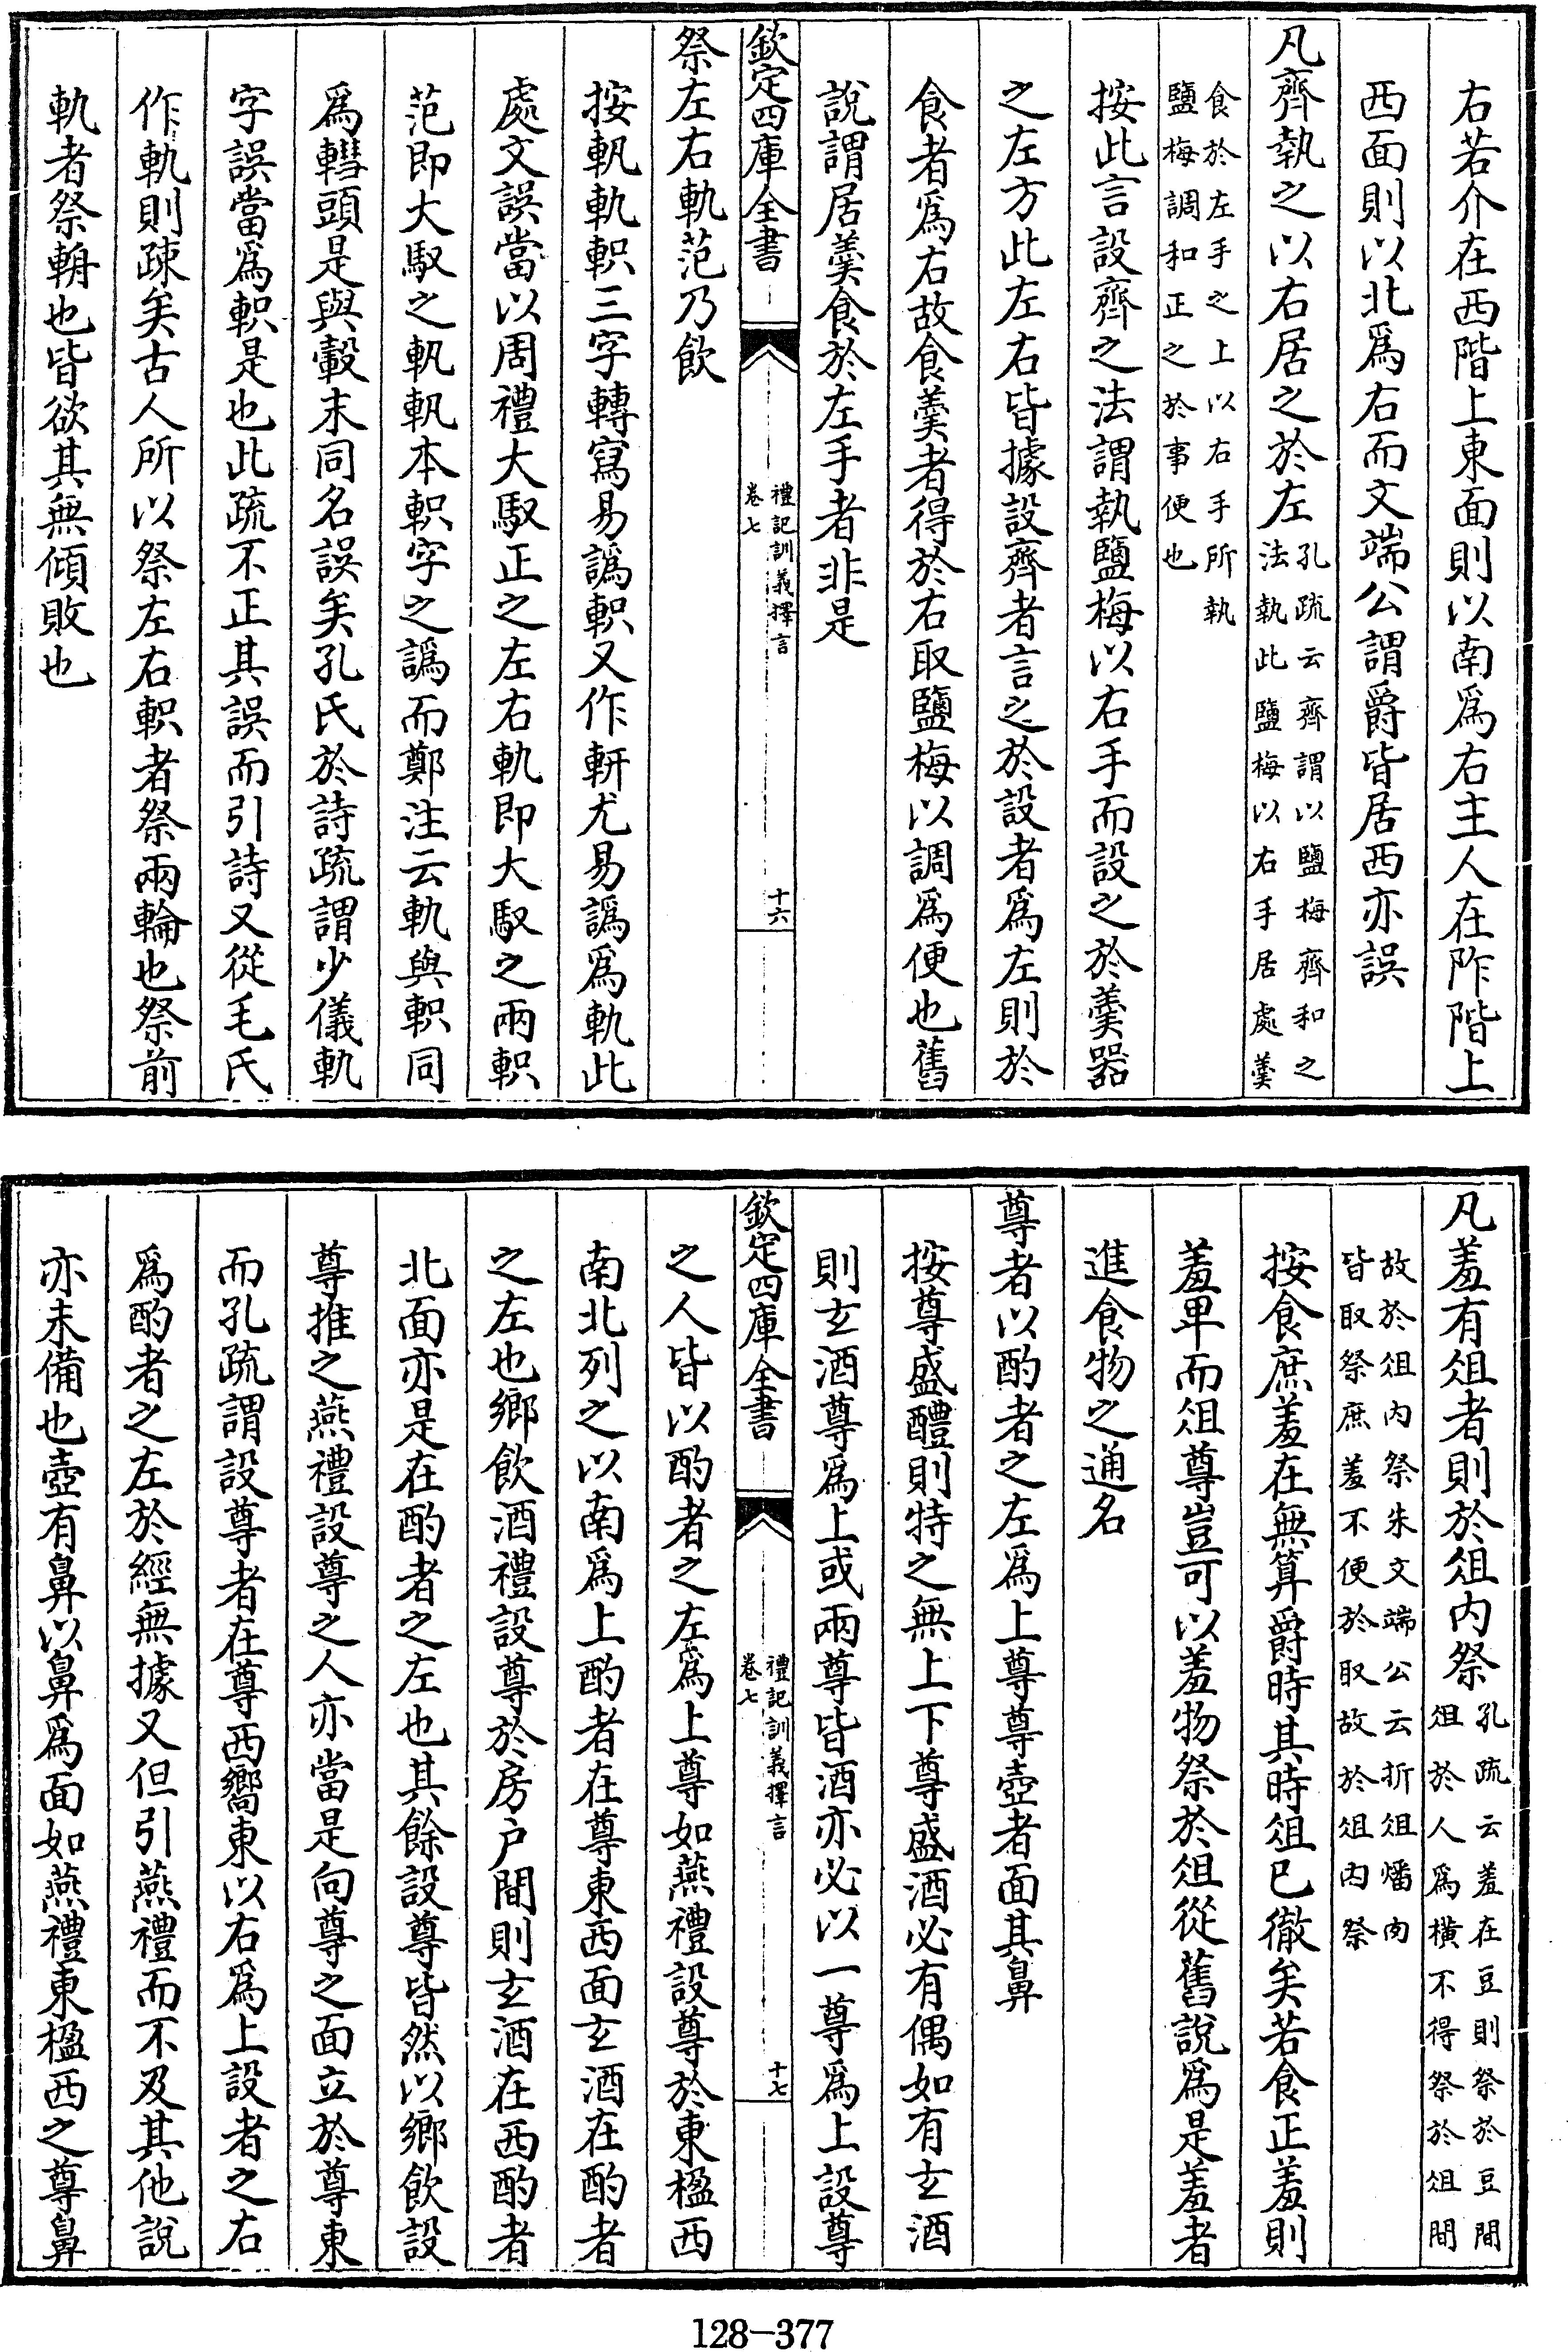 右若介在西階上東面則以南爲右主人在阼階上
西面則以北爲右而文端公謂爵皆居西亦誤
凡齊執之以右居之於左孔疏云齊謂以鹽梅齊和之
法執此鹽梅以右手居處羹
食於左手之上以右手所執
鹽梅調和正之於事便也
按此言設齊之法謂執鹽梅以右手而設之於羹器
之左方此左右皆據設齊者言之於設者爲左則於
食者爲右故食羹者得於右取鹽梅以調爲便也舊
說謂居羹食於左手者非是
欽定四庫全書
禮記訓義擇言
卷七
十六
祭左右軌范乃飲
按軓軌軹三字轉寫易譌軹又作軒尤易譌爲軌此
處文誤當以周禮大馭正之左右軌即大馭之兩軹
范即大馭之軓軓本軹字之譌而鄭注云軌與軹同
爲轊頭是與轂末同名誤矣孔氏於詩疏謂少儀軌
字誤當爲軹是也此疏不正其誤而引詩又從毛氏
作軌則疎矣古人所以祭左右軹者祭兩輪也祭前
軌者祭輈也皆欲其無傾敗也
凡羞有俎者則於俎内祭孔疏云羞在豆則祭於豆間
俎於人爲橫不得祭於俎間
故於俎内祭朱文端公云折俎燔肉
皆取祭庶羞不便於取故於俎内祭
按食庶羞在無算爵時其時俎已徹矣若食正羞則
羞卑而俎尊豈可以羞物祭於俎從舊說爲是羞者
進食物之通名
尊者以酌者之左爲上尊尊壺者面其鼻
按尊盛醴則特之無上下尊盛酒必有偶如有玄酒
則玄酒尊爲上或兩尊皆酒亦必以一尊爲上設尊
欽定四庫全書
禮記訓義擇言
卷七
十七
之人皆以酌者之左爲上尊如燕禮設尊於東楹西
南北列之以南爲上酌者在尊東西面玄酒在酌者
之左也鄉飲酒禮設尊於房户間則玄酒在西酌者
北面亦是在酌者之左也其餘設尊皆然以鄉飲設
尊推之燕禮設尊之人亦當是向尊之面立於尊東
而孔疏謂設尊者在尊西嚮東以右爲上設者之右
爲酌者之左於經無據又但引燕禮而不及其他說
亦未備也壺有鼻以鼻爲面如燕禮東楹西之尊鼻
128-377